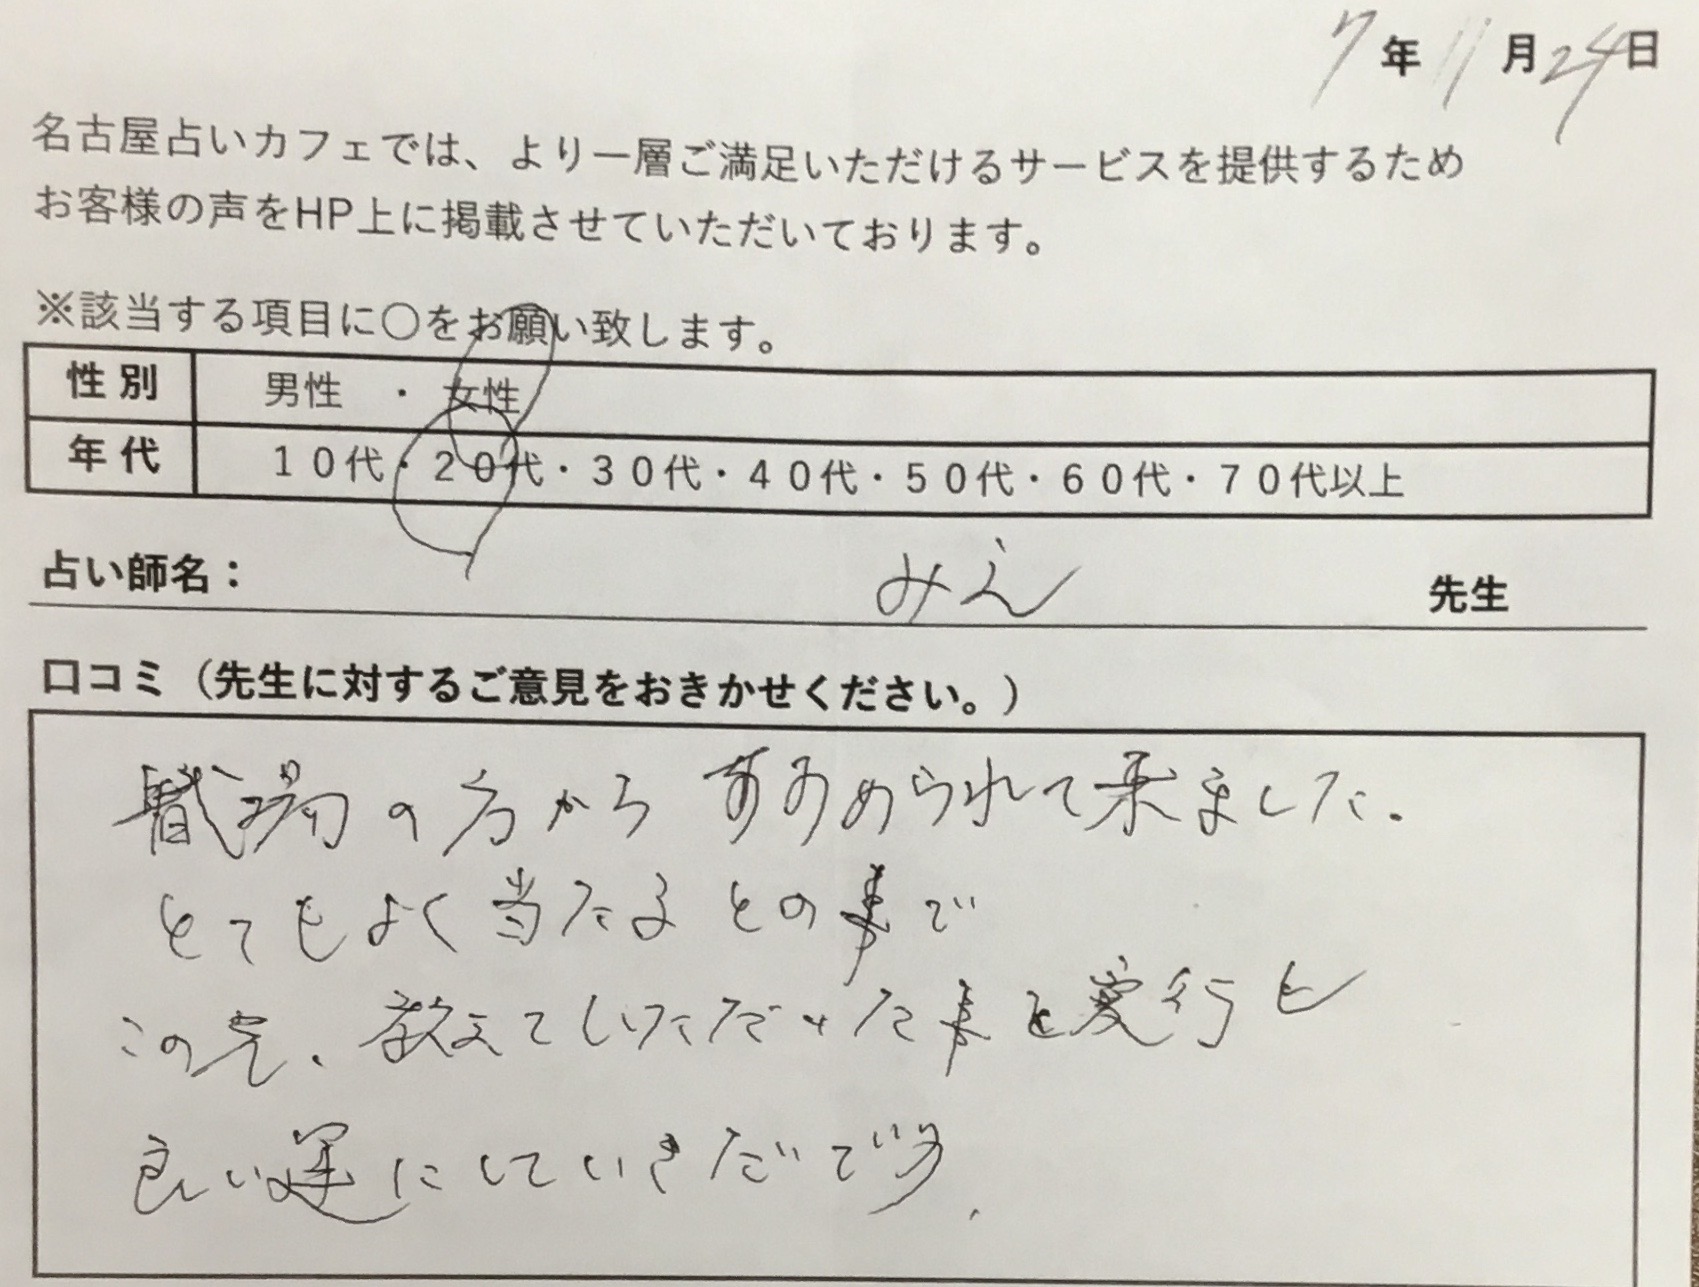 7年11月24日
名古屋占いカフェでは、より一層ご満足いただけるサービスを提供するため
お客様の声をHP上に掲載させていただいております。
※該当する項目に〇をお願い致します。
性別 男性 ・ 女性
年代 10代・20代・30代・40代・50代・60代・70代以上
占い師名： みえ 先生
口コミ（先生に対するご意見をおきかせください。）
職場の方からすすめられて来ました.
とてもよく当たるとの事で
この先、教えていただけた事を実行し
良い運にしていきたいです、